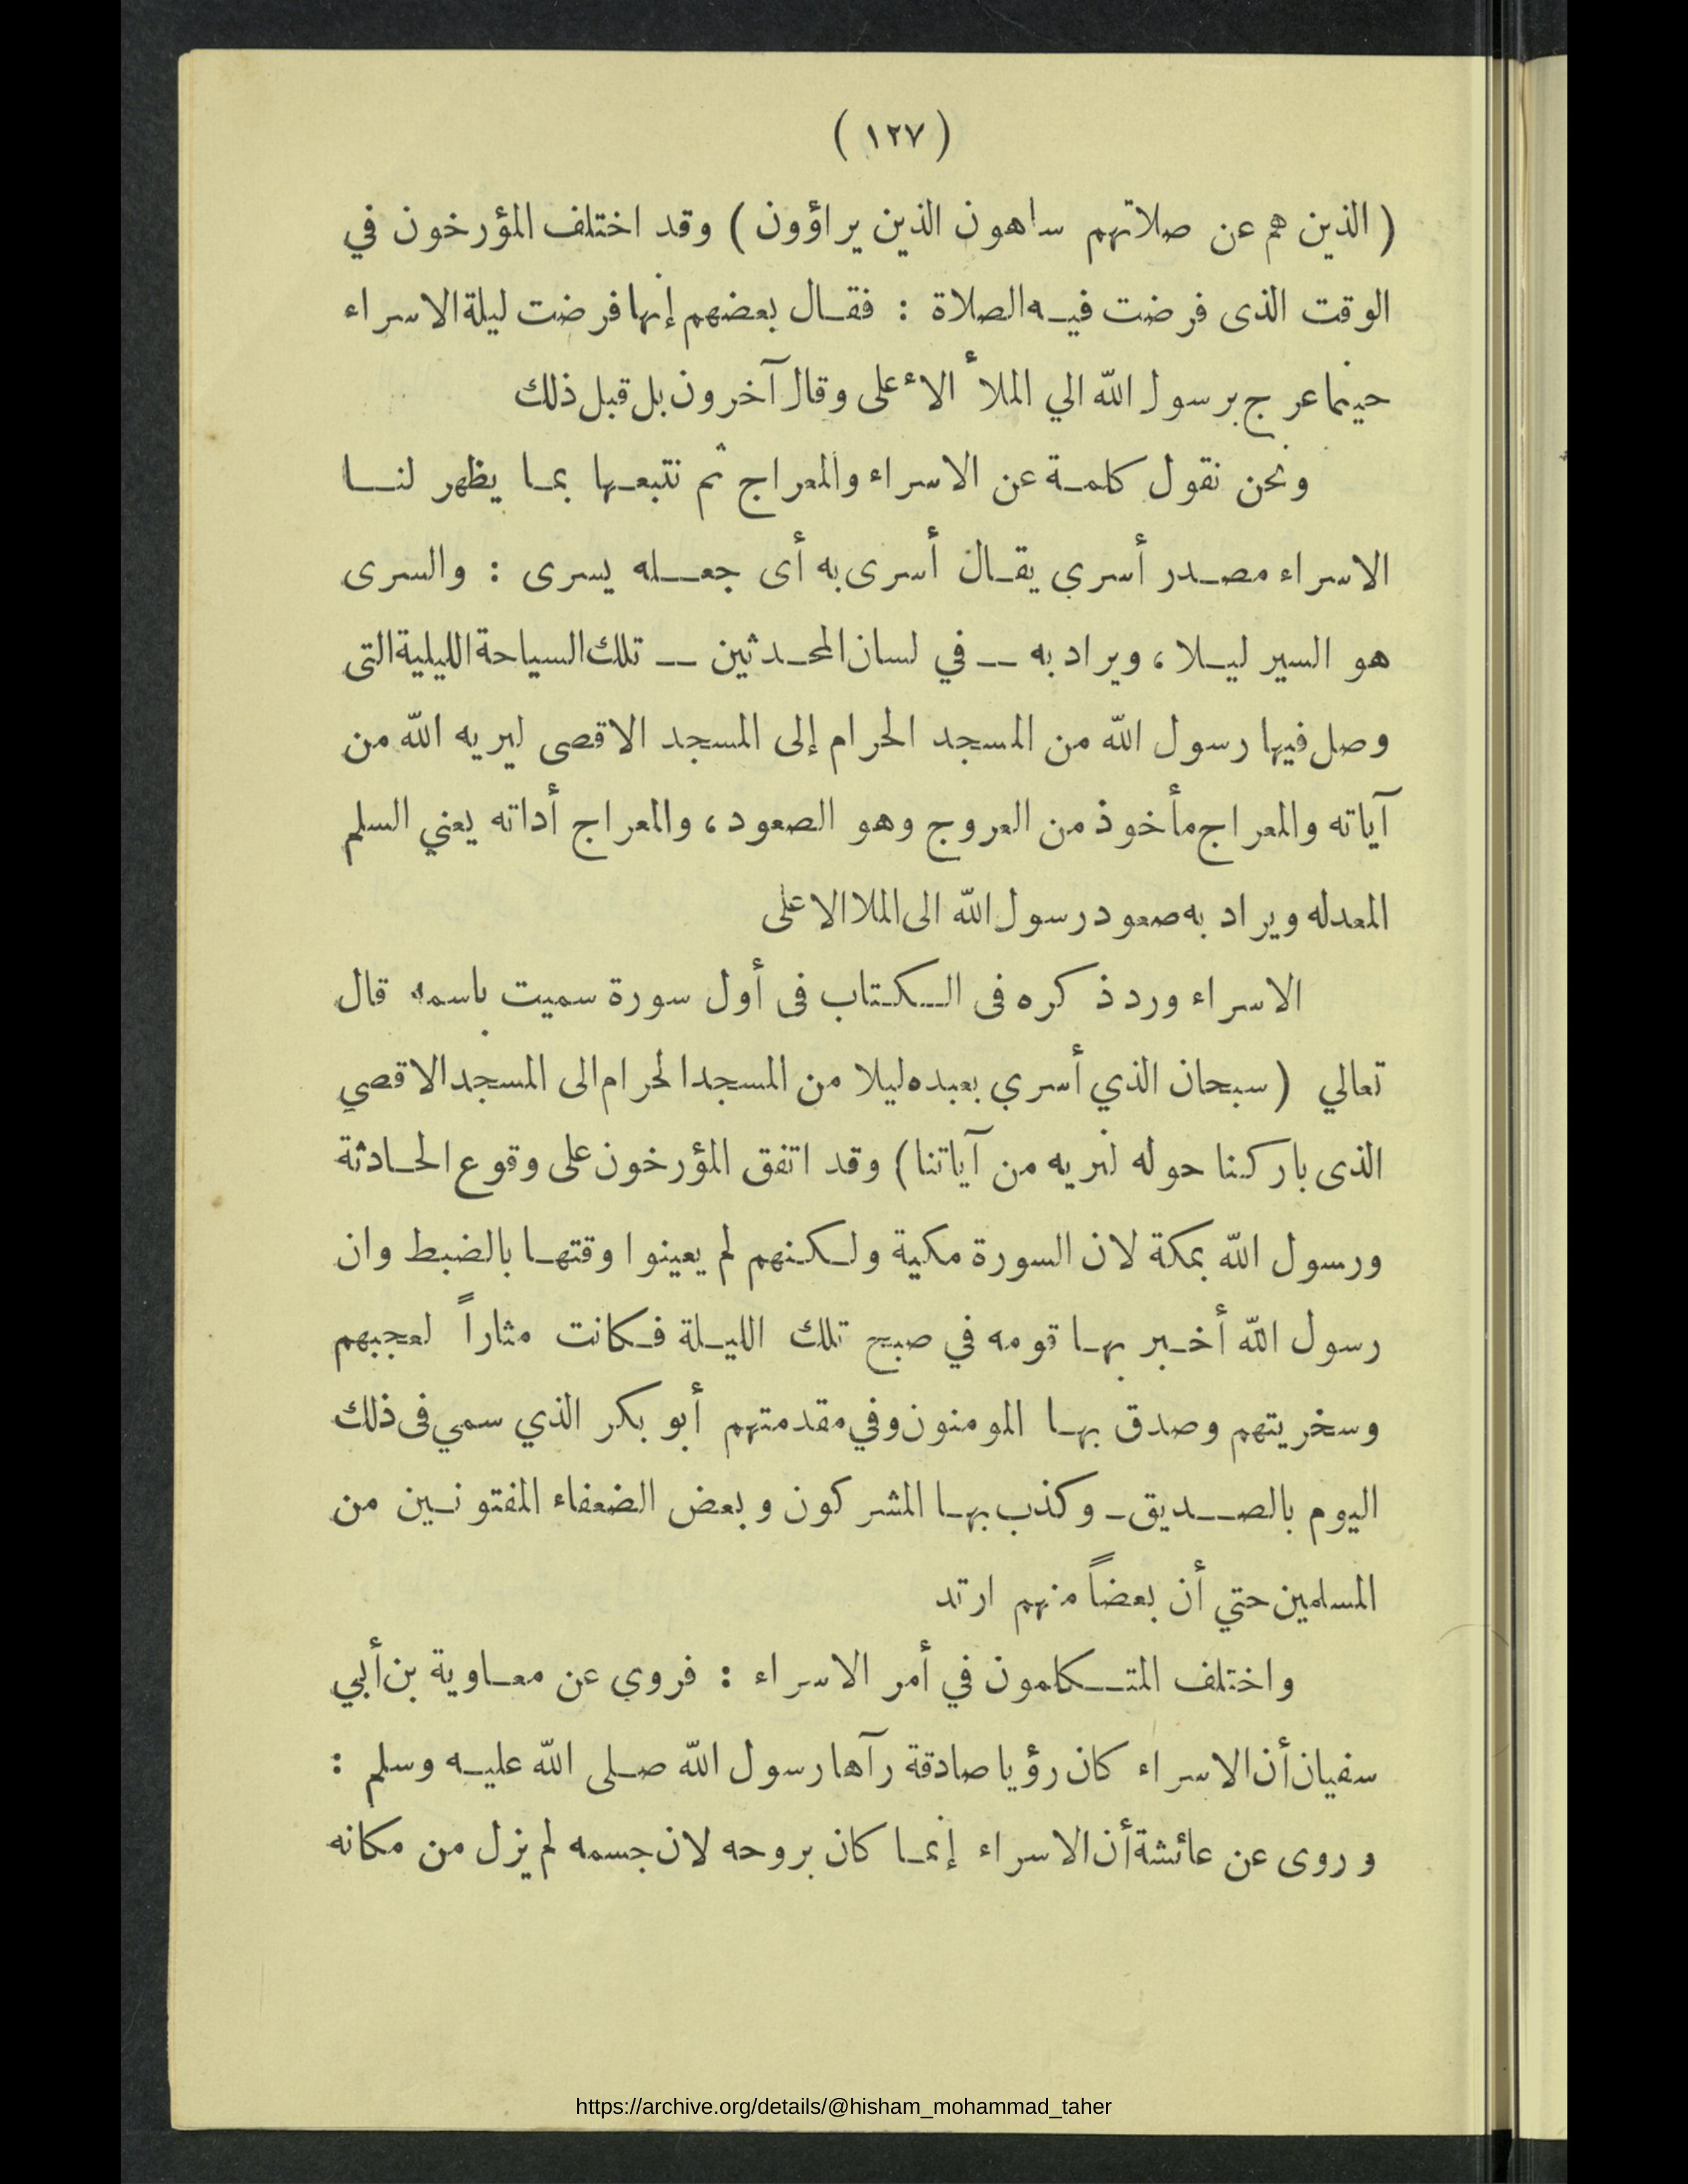 ( ١٢٧ )
( الذين هم عن صلاتهم ساهون الذين يراؤون ) وقد اختلف المؤرخون في
الوقت الذى فرضت فيه الصلاة : فقال بعضهم إنها فرضت ليلة الاسراء
حينما عرج برسول الله الي الملأ الأعلى وقال آخرون بل قبل ذلك
ونحن نقول كلمة عن الاسراء والمعراج ثم نتبعها بما يظهر لنا
الاسراء مصدر أسري يقال أسرى به أى جعله يسرى : والسرى
هو السير ليلا ، ويراد به — في لسان المحدثين — تلك السياحة الليلية التى
وصل فيها رسول الله من المسجد الحرام إلى المسجد الاقصى ليريه الله من
آياته والمعراج مأخوذ من العروج وهو الصعود ، والمعراج أداته يعني السلم
المعدله ويراد به صعود رسول الله الى الملا الاعلى
الاسراء ورد ذكره فى الكتاب فى أول سورة سميت باسمه قال
تعالي ( سبحان الذي أسري بعبده ليلا من المسجد الحرام الى المسجد الاقصي
الذى باركنا حوله لنريه من آياتنا ) وقد اتفق المؤرخون على وقوع الحادثة
ورسول الله بمكة لان السورة مكية ولكنهم لم يعينوا وقتها بالضبط وان
رسول الله أخبر بها قومه في صبح تلك الليلة فكانت مثاراً لعجبهم
وسخريتهم وصدق بها المومنون وفي مقدمتهم أبو بكر الذي سمي فى ذلك
اليوم بالصديق - وكذب بها المشركون وبعض الضعفاء المفتونين من
المسلمين حتي أن بعضاً منهم ارتد
واختلف المتكلمون في أمر الاسراء : فروي عن معاوية بن أبي
سفيان أن الاسراء كان رؤيا صادقة رآها رسول الله صلى الله عليه وسلم :
وروى عن عائشة أن الاسراء إنما كان بروحه لان جسمه لم يزل من مكانه
https://archive.org/details/@hisham_mohammad_taher